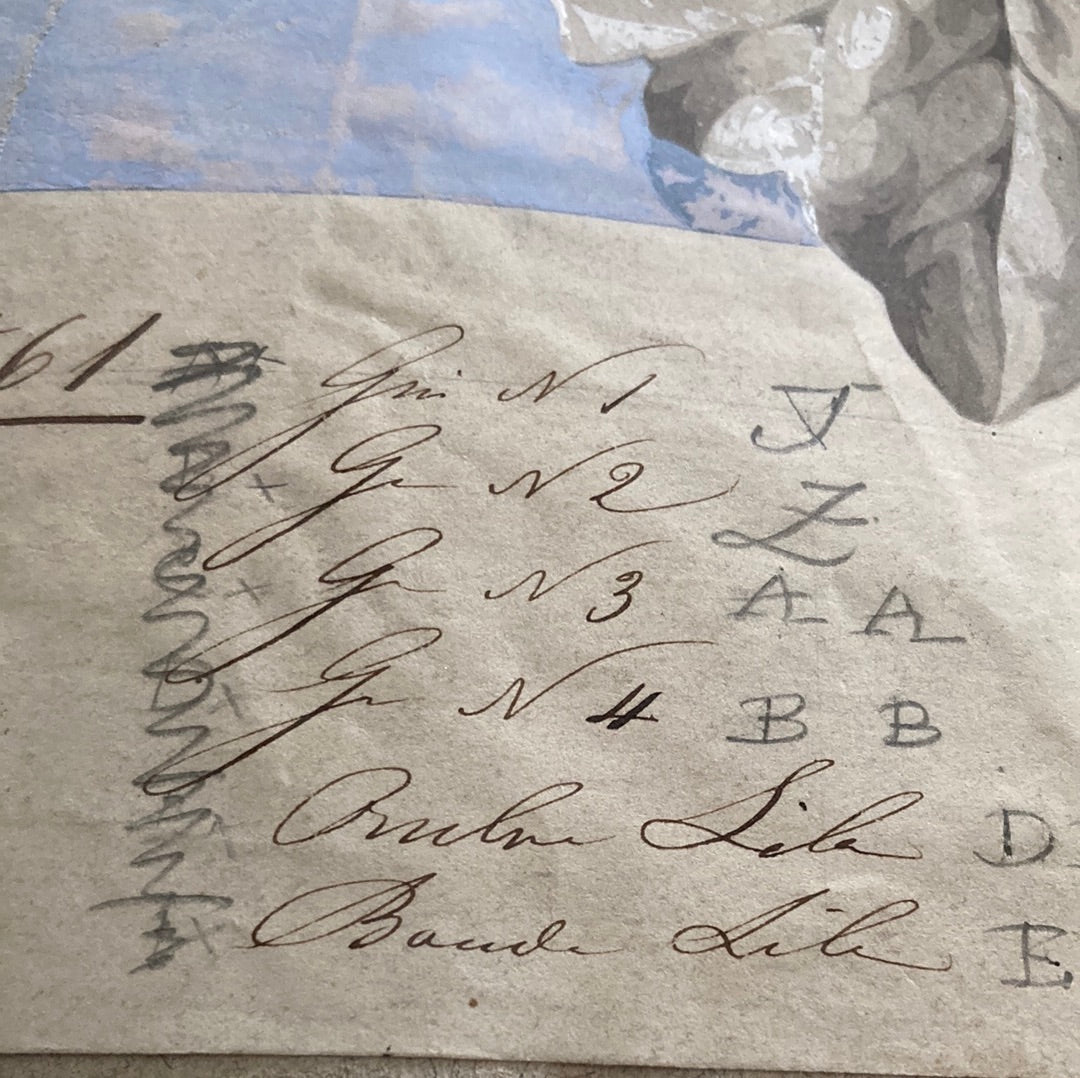 61
Gris N 1 Y
Gr N 2 Z
Gr N 3 A A
Gr N 4 B B
Ombre Lila D
Bande Lila E